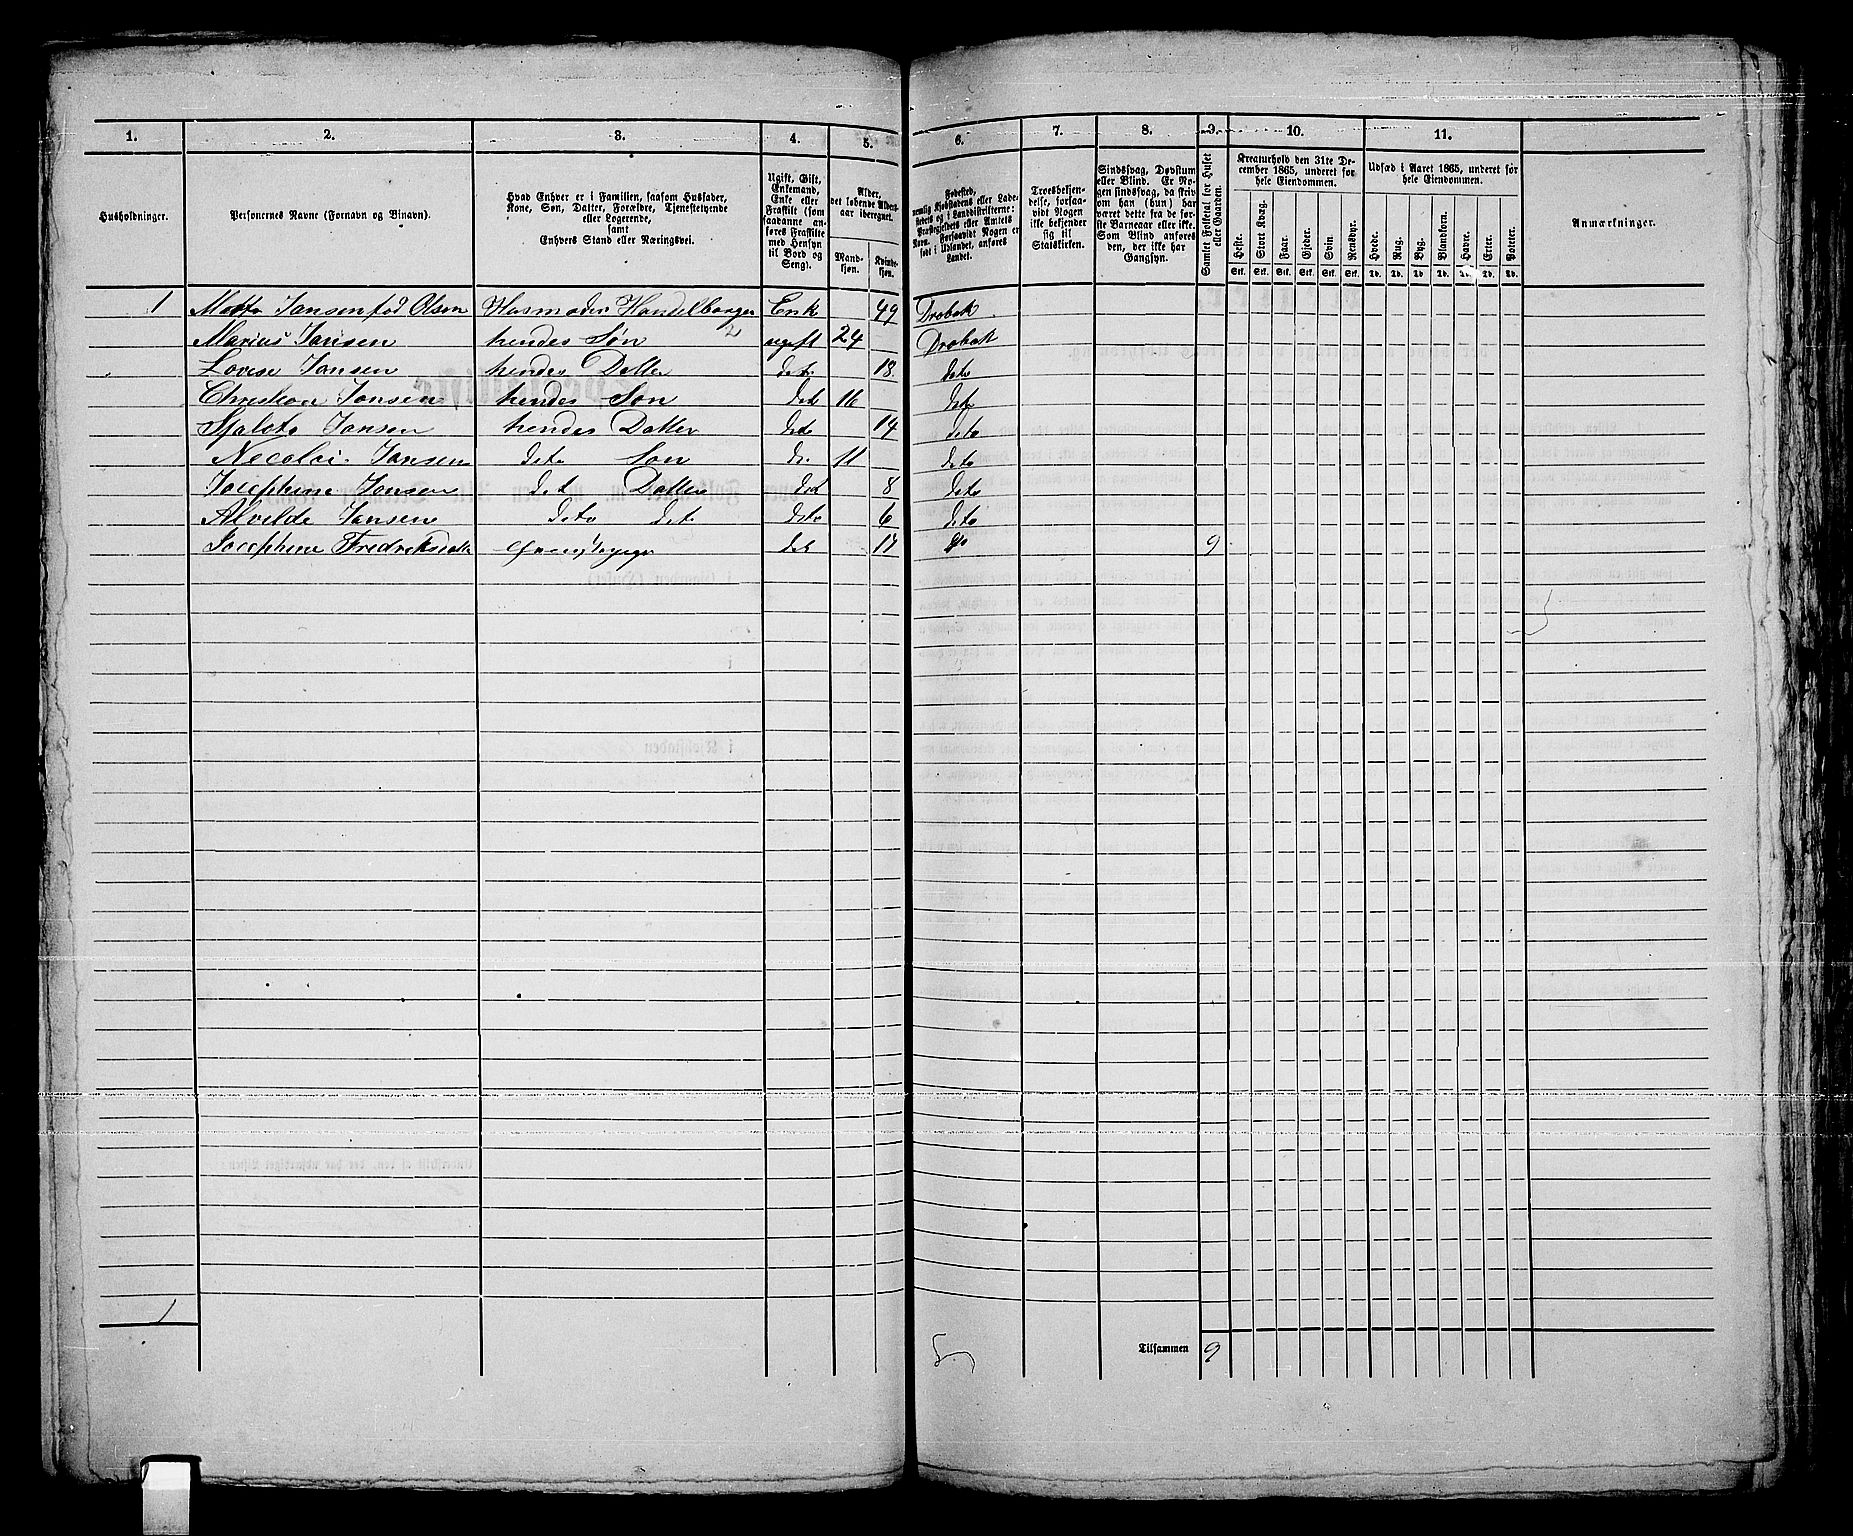 1. 2. 3. 4. 5. 6. 7. 8. 9. 10. 11.
Husholdninger.
Personernes Navne (Fornavn og Binavn).
Hvad Enhver er i Familien, saasom Husfader,
Kone, Søn, Datter, Forældre, Tjenestetyende
eller Logerende,
samt
Enhvers Stand eller Næringsvei.
Ugift, Gift,
Enkemand,
Enke eller
Fraskilt (som
saadanne an-
føres Fraskilte
med Hensyn
til Bord og
Seng).
Alder,
det løbende Alders-
aar iberegnet.
Mand-
kjøn.
Kvinde-
kjøn.
Fødested,
nemlig Kjøbstadens eller Lade-
stedets og i Landdistrikterne:
Præstegjeldets eller Amtets
Navn. Forsaavidt Nogen er
født i Udlandet, anføres
Landet.
Troesbekjen-
delse, forsaa-
vidt Nogen
ikke bekjender
sig til
Statskirken.
Sindssvag, Døvstum
eller Blind. Er No-
gen sindssvag, da skriv
om han (hun) har
været dette fra de før-
ste Barneaar eller ikke.
Som Blind anføres
den, der ikke har
Gangsyn.
Samlet Folketal for Huset
eller Gaarden.
Kreaturhold den 31te De-
cember 1865, underet for
hele Eiendommen.
Heste. Stort Kvæg. Faar. Gjeder. Svin. Rensdyr.
Stk. Stk. Stk. Stk. Stk. Stk.
Udsæd i Aaret 1865, underet for
hele Eiendommen.
Hvede. Rug. Byg. Blandkorn. Havre. Erter. Poteter.
Td. Td. Td. Td. Td. Td. Td.
Anmærkninger.
1 Jansen fød Olsen Husmoder Enk 49 Drobak
Marius Jansen hendes Søn ugift 24 Drobak
Lovise Jansen hendes Datter det 18 deto
Christian Jansen hendes Søn det 16 det
Jansen hendes Datter det 14 deto
Necolai Jansen deto Søn do. 11 deto
Josephine Jansen det Datter det 8 deto
Alvilde Jansen deto det deto 6 deto
Josephine det 17 do 9
1
5
Tilsammen 9